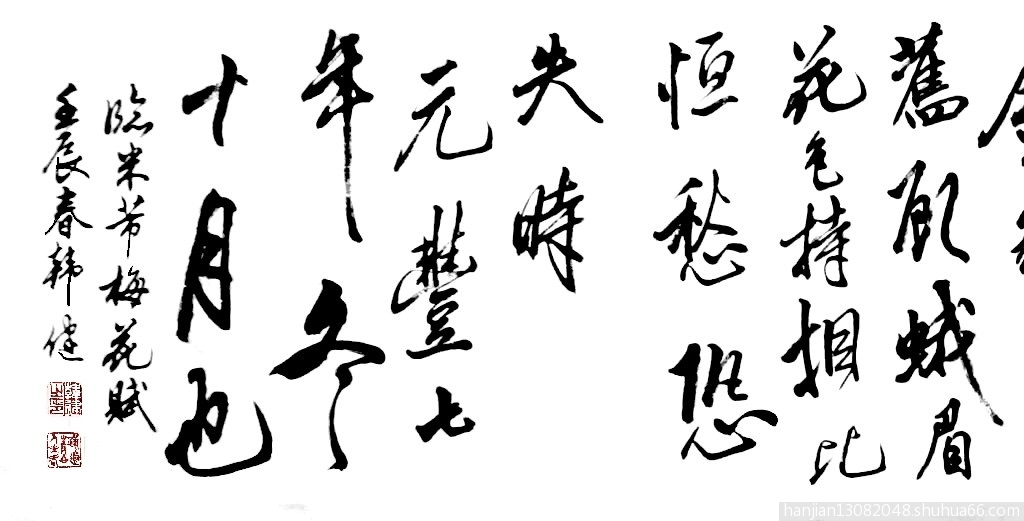 舊願蛾眉
花色持相比
恒愁恐
失時
元豐七
年冬
十月也
臨米芾梅花賦
壬辰春韩健
hanjian13082048.shuhua66.com